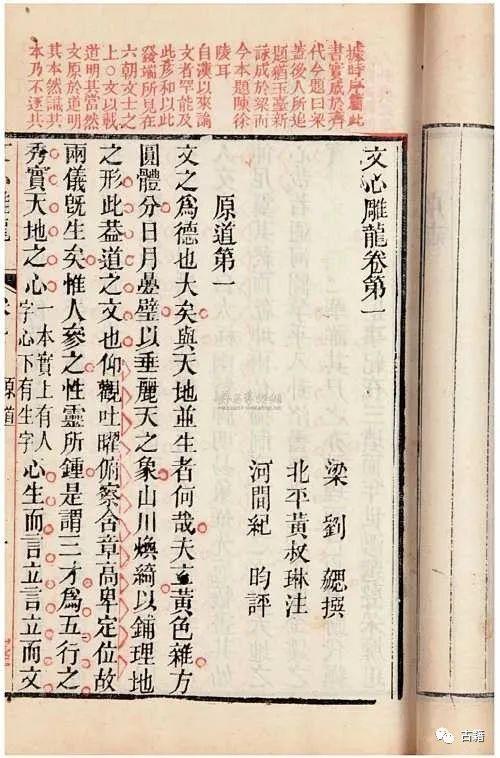 據時序篇此
書實成於齊
代今題曰梁
蓋後人所追
題猶玉臺新
詠成於梁而
今本題陳徐
陵耳
自漢以來論
文者罕能及
此彥和以此
發端所見在
六朝文士之
上○文以載
道明其當然
文原於道明
其本然識其
本乃不逐其
文心雕龍卷第一
梁 劉 勰撰
北平黃叔琳注
河間紀 昀評
原道第一
文之爲德也大矣與天地並生者何哉夫玄黃色雜方
圓體分日月疊璧以垂麗天之象山川煥綺以鋪理地
之形此蓋道之文也仰觀吐曜俯察含章高卑定位故
兩儀旣生矣惟人參之性靈所鍾是謂三才爲五行之
秀實天地之心一本實上有人字心下有生字心生而言立言立而文
原道
古籍